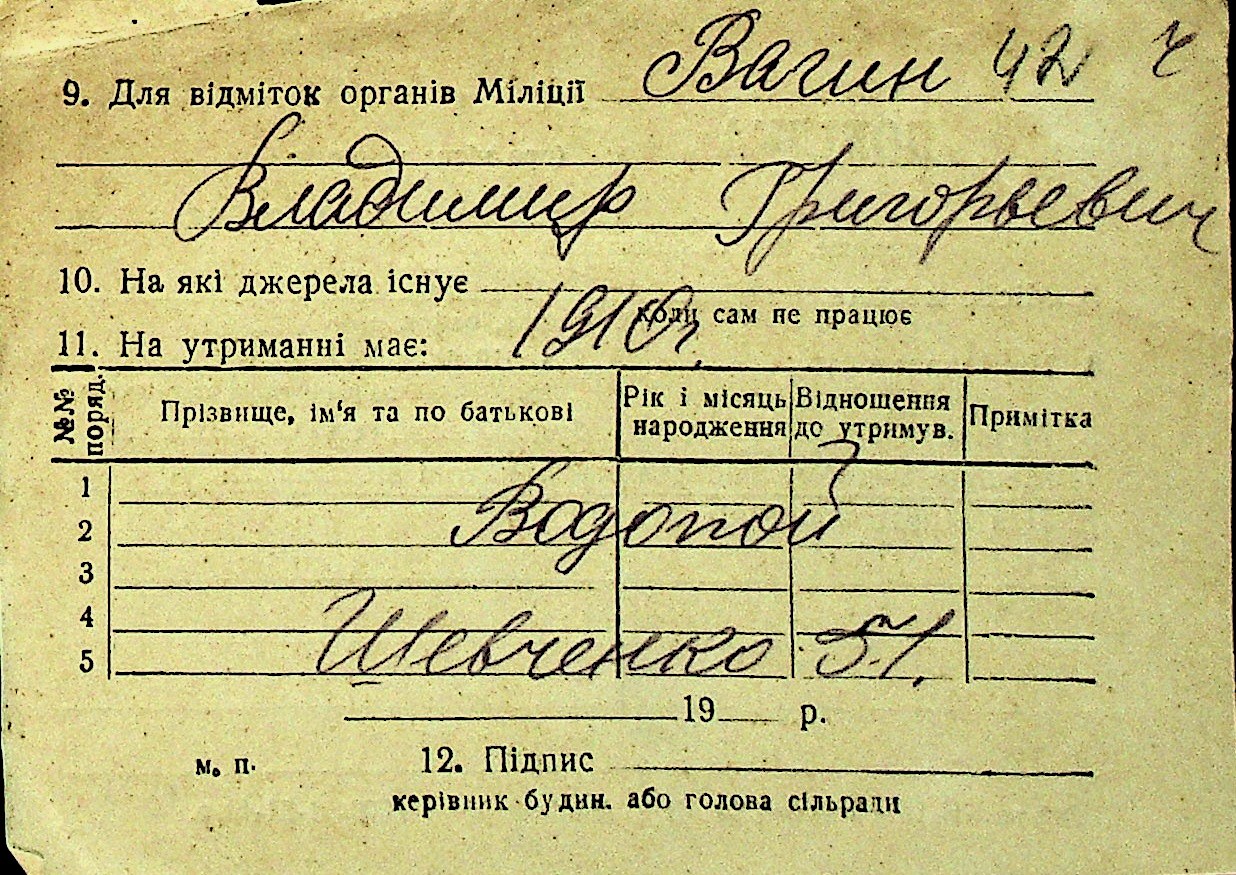 Вагин 42 г
9. Для відміток органів Міліції
Владимир Григорьевич
10. На які джерела існує
коли сам не працює
1910г.
11. На утриманні має:
№№ поряд. Прізвище, ім'я та по батькові Рік і місяць народження Відношення до утримув. Примітка
1
2 Водопой
3
4
5 Шевченко 51.
19 р.
м. п. 12. Підпис
керівник будин. або голова сільради